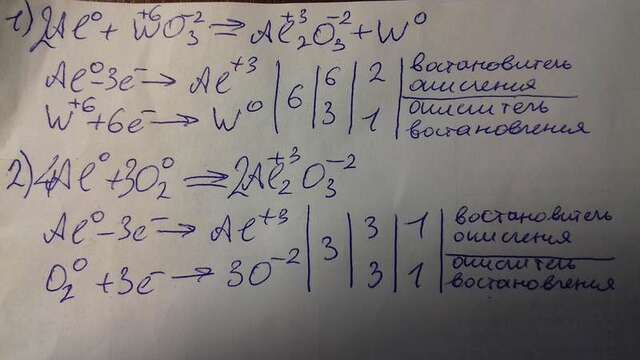 1) 2Al⁰ + W⁺⁶O₃⁻² = Al₂⁺³O₃⁻² + W⁰
Al⁰ - 3e⁻ → Al⁺³ | 6 | 6 | 2 | востановитель окисления
W⁺⁶ + 6e⁻ → W⁰ | 3 | 1 | окислитель востановления
2) 4Al⁰ + 3O₂⁰ = 2Al₂⁺³O₃⁻²
Al⁰ - 3e⁻ → Al⁺³ | 3 | 3 | 1 | востановитель окисления
O₂⁰ + 3e⁻ → 3O⁻² | 3 | 1 | окислитель востановления